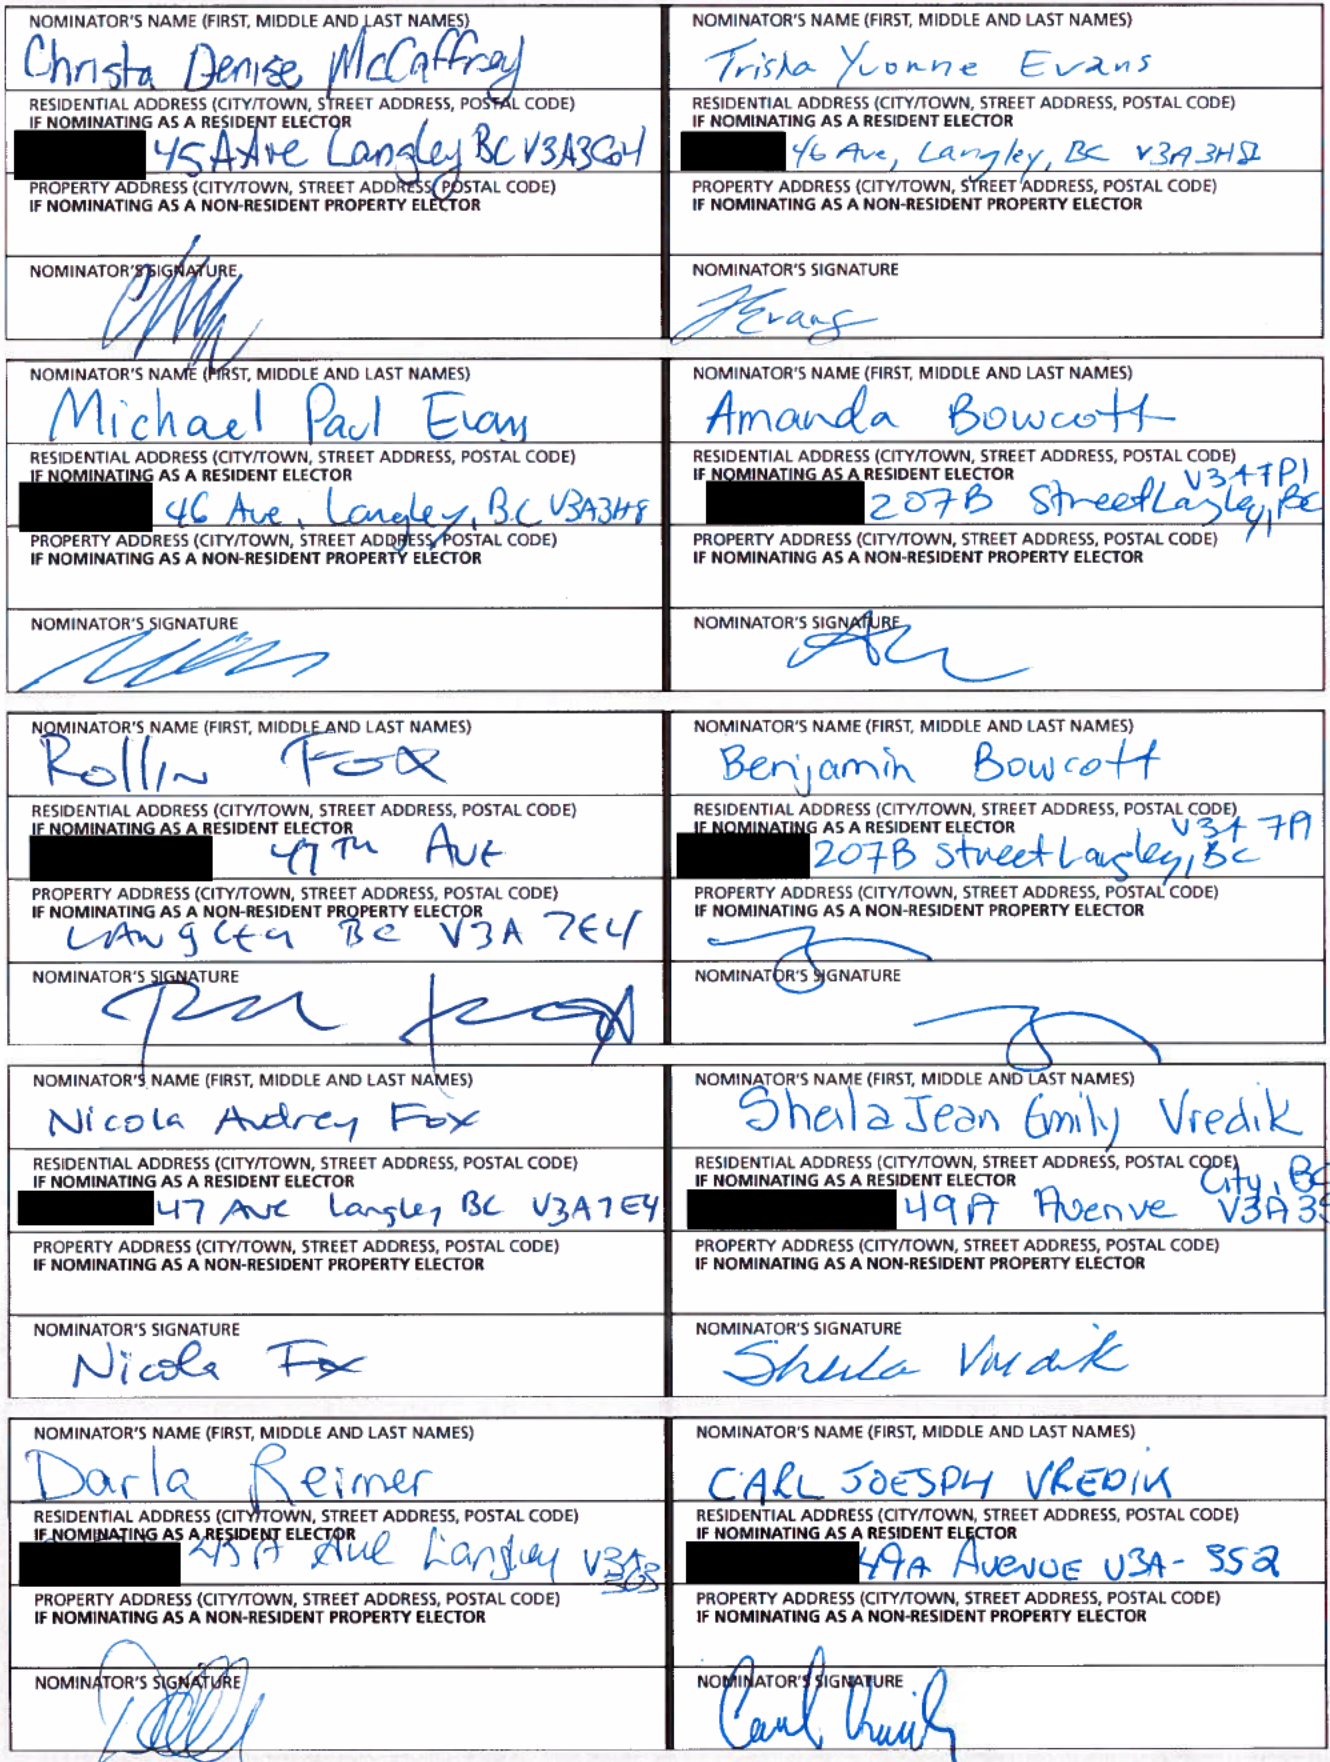 NOMINATOR'S NAME (FIRST, MIDDLE AND LAST NAMES)
Christa Denise McCaffrey
RESIDENTIAL ADDRESS (CITY/TOWN, STREET ADDRESS, POSTAL CODE)
IF NOMINATING AS A RESIDENT ELECTOR
45A Ave Langley BC V3A3G4
PROPERTY ADDRESS (CITY/TOWN, STREET ADDRESS, POSTAL CODE)
IF NOMINATING AS A NON-RESIDENT PROPERTY ELECTOR
NOMINATOR'S SIGNATURE
NOMINATOR'S NAME (FIRST, MIDDLE AND LAST NAMES)
Trisha Yvonne Evans
RESIDENTIAL ADDRESS (CITY/TOWN, STREET ADDRESS, POSTAL CODE)
IF NOMINATING AS A RESIDENT ELECTOR
46 Ave, Langley, BC V3A
PROPERTY ADDRESS (CITY/TOWN, STREET ADDRESS, POSTAL CODE)
IF NOMINATING AS A NON-RESIDENT PROPERTY ELECTOR
NOMINATOR'S SIGNATURE
TEvans
NOMINATOR'S NAME (FIRST, MIDDLE AND LAST NAMES)
Michael Paul Evans
RESIDENTIAL ADDRESS (CITY/TOWN, STREET ADDRESS, POSTAL CODE)
IF NOMINATING AS A RESIDENT ELECTOR
46 Ave, Langley, BC V3A3H8
PROPERTY ADDRESS (CITY/TOWN, STREET ADDRESS, POSTAL CODE)
IF NOMINATING AS A NON-RESIDENT PROPERTY ELECTOR
NOMINATOR'S SIGNATURE
NOMINATOR'S NAME (FIRST, MIDDLE AND LAST NAMES)
Amanda Bowcott
RESIDENTIAL ADDRESS (CITY/TOWN, STREET ADDRESS, POSTAL CODE)
IF NOMINATING AS A RESIDENT ELECTOR
207B Street Langley, BC
PROPERTY ADDRESS (CITY/TOWN, STREET ADDRESS, POSTAL CODE)
IF NOMINATING AS A NON-RESIDENT PROPERTY ELECTOR
NOMINATOR'S SIGNATURE
NOMINATOR'S NAME (FIRST, MIDDLE AND LAST NAMES)
Rollin Fox
RESIDENTIAL ADDRESS (CITY/TOWN, STREET ADDRESS, POSTAL CODE)
IF NOMINATING AS A RESIDENT ELECTOR
47TH AVE
PROPERTY ADDRESS (CITY/TOWN, STREET ADDRESS, POSTAL CODE)
IF NOMINATING AS A NON-RESIDENT PROPERTY ELECTOR
LANGLEY BC V3A 7E4
NOMINATOR'S SIGNATURE
NOMINATOR'S NAME (FIRST, MIDDLE AND LAST NAMES)
Benjamin Bowcott
RESIDENTIAL ADDRESS (CITY/TOWN, STREET ADDRESS, POSTAL CODE)
IF NOMINATING AS A RESIDENT ELECTOR
207B Street Langley, BC
PROPERTY ADDRESS (CITY/TOWN, STREET ADDRESS, POSTAL CODE)
IF NOMINATING AS A NON-RESIDENT PROPERTY ELECTOR
NOMINATOR'S SIGNATURE
NOMINATOR'S NAME (FIRST, MIDDLE AND LAST NAMES)
Nicola Audrey Fox
RESIDENTIAL ADDRESS (CITY/TOWN, STREET ADDRESS, POSTAL CODE)
IF NOMINATING AS A RESIDENT ELECTOR
47 Ave Langley BC V3A7E4
PROPERTY ADDRESS (CITY/TOWN, STREET ADDRESS, POSTAL CODE)
IF NOMINATING AS A NON-RESIDENT PROPERTY ELECTOR
NOMINATOR'S SIGNATURE
Nicola Fox
NOMINATOR'S NAME (FIRST, MIDDLE AND LAST NAMES)
Sheila Jean Emily Vredik
RESIDENTIAL ADDRESS (CITY/TOWN, STREET ADDRESS, POSTAL CODE)
IF NOMINATING AS A RESIDENT ELECTOR
City, BC
49A Avenue V3A 3S
PROPERTY ADDRESS (CITY/TOWN, STREET ADDRESS, POSTAL CODE)
IF NOMINATING AS A NON-RESIDENT PROPERTY ELECTOR
NOMINATOR'S SIGNATURE
Sheila Vredik
NOMINATOR'S NAME (FIRST, MIDDLE AND LAST NAMES)
Darla Reimer
RESIDENTIAL ADDRESS (CITY/TOWN, STREET ADDRESS, POSTAL CODE)
IF NOMINATING AS A RESIDENT ELECTOR
Ave Langley V3A
PROPERTY ADDRESS (CITY/TOWN, STREET ADDRESS, POSTAL CODE)
IF NOMINATING AS A NON-RESIDENT PROPERTY ELECTOR
NOMINATOR'S SIGNATURE
NOMINATOR'S NAME (FIRST, MIDDLE AND LAST NAMES)
CARL JOESPH VREDIK
RESIDENTIAL ADDRESS (CITY/TOWN, STREET ADDRESS, POSTAL CODE)
IF NOMINATING AS A RESIDENT ELECTOR
49A AVENUE V3A-3S2
PROPERTY ADDRESS (CITY/TOWN, STREET ADDRESS, POSTAL CODE)
IF NOMINATING AS A NON-RESIDENT PROPERTY ELECTOR
NOMINATOR'S SIGNATURE
Carl Vredik